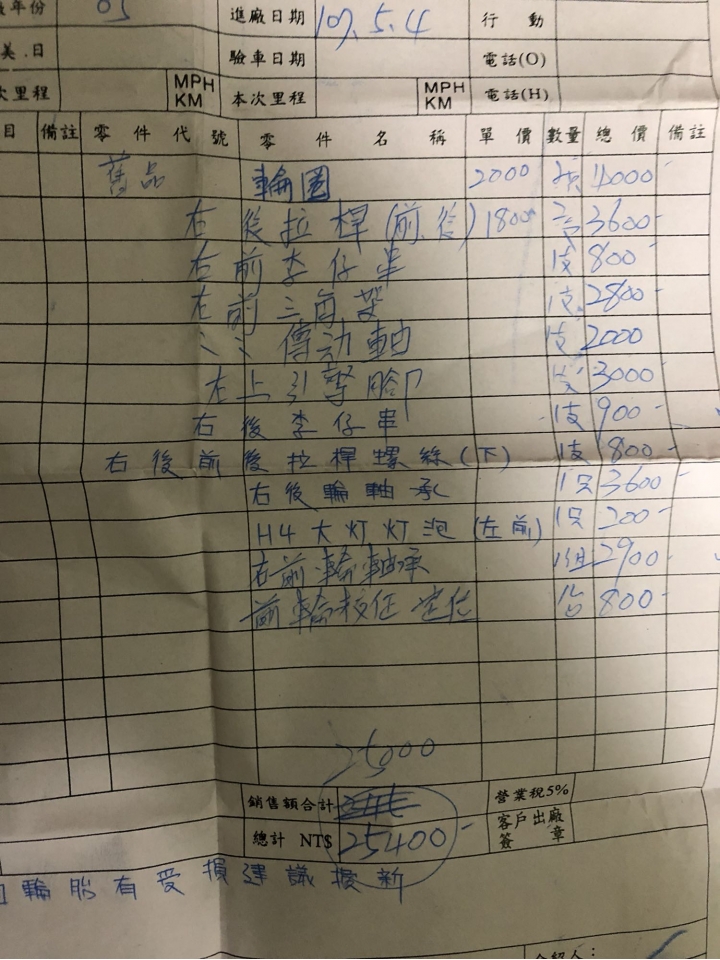 年份 05 進廠日期 107.5.4 行動
美.日 驗車日期 電話(O)
次里程 MPH KM 本次里程 MPH KM 電話(H)
目 備註 零件代號 零件名稱 單價 數量 總價 備註
舊品 輪圈 2000 4000
右後拉桿(前.後) 1800 3600-
右前李仔串 1支 800-
左前三角架 1支 2800-
〃〃傳動軸 1支 2000
左上引擎腳 1支 3000-
右後李仔串 1支 900-
右後前後拉桿螺絲(下) 1支 800-
右後輪軸承 1只 3600-
H4大灯灯泡(左前) 1只 200-
右前輪軸承 1組 2900-
前輪校正定位 1台 800-
25000
銷售額合計 營業稅5%
總計 NT$ 25400- 客戶出廠簽章
輪胎有受損建議換新
介紹人: